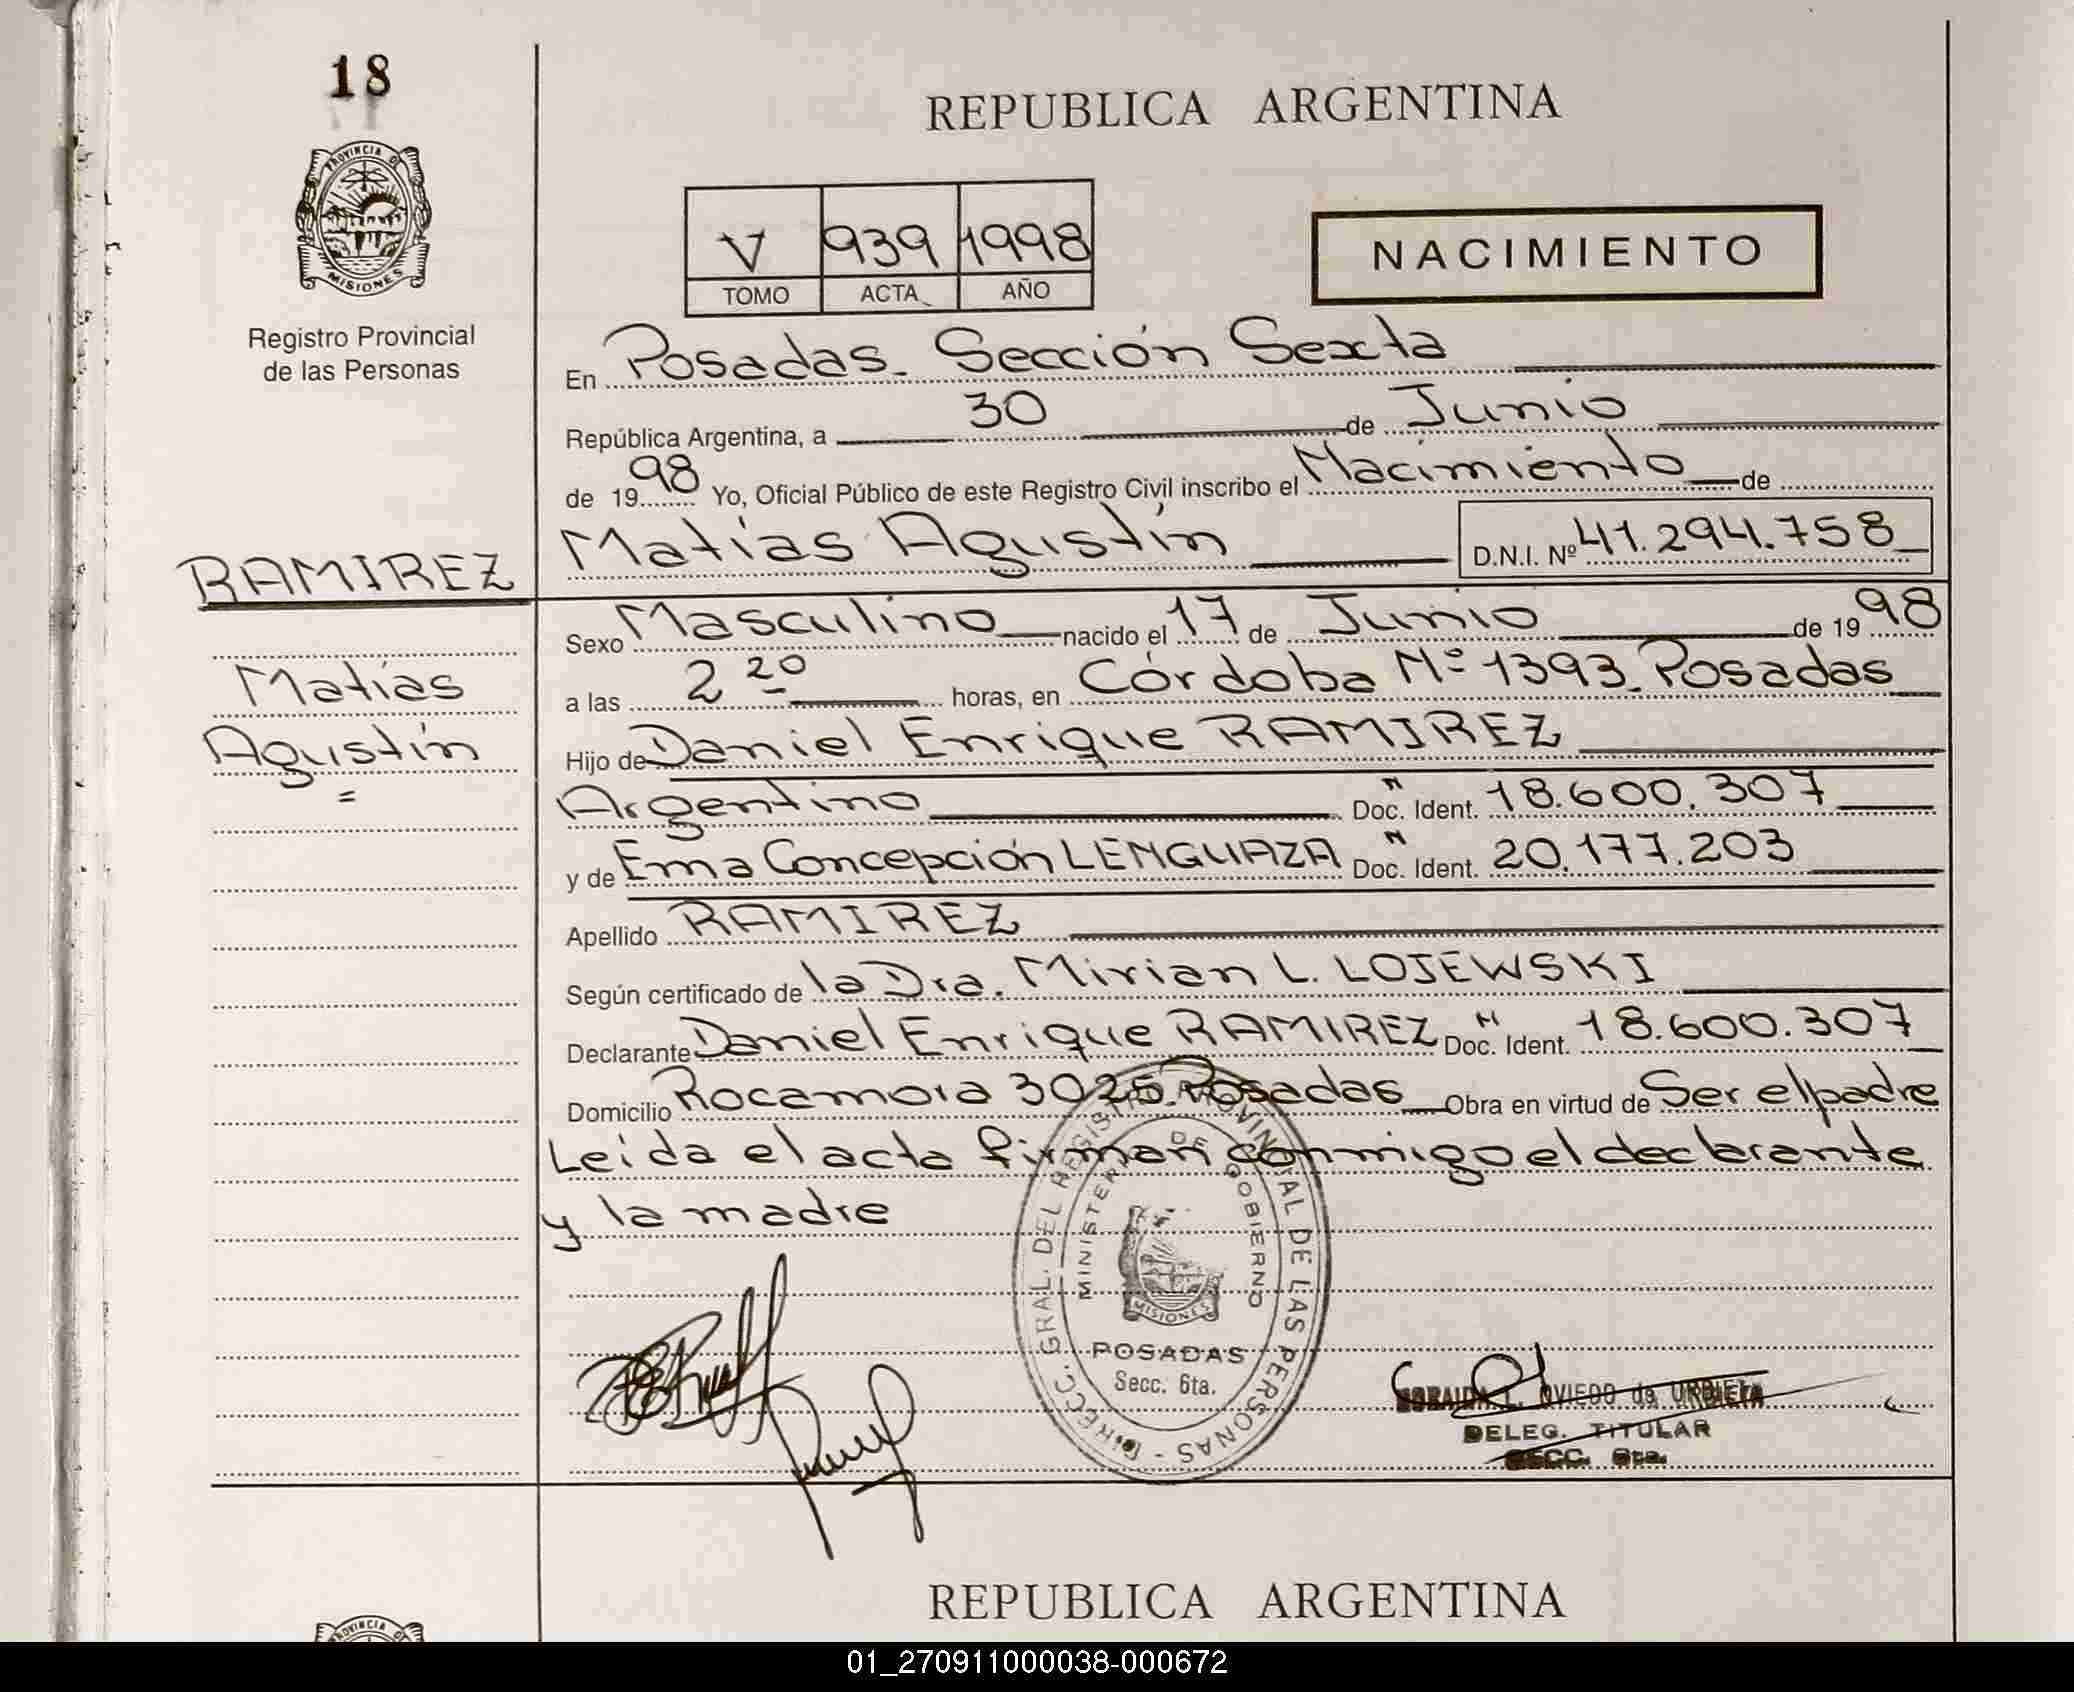 18
PROVINCIA DE
MISIONES
Registro Provincial
de las Personas
RAMIREZ
Matías
Agustín
=
REPUBLICA ARGENTINA
V 939 1998
TOMO ACTA AÑO
NACIMIENTO
En Posadas_ Sección Sexta
República Argentina, a 30 de Junio
de 1998 Yo, Oficial Público de este Registro Civil inscribo el Nacimiento de
Matías Agustín D.N.I. Nº 41.294.758
Sexo Masculino nacido el 17 de Junio de 1998
a las 2 20 horas, en Córdoba Nº 1393_Posadas
Hijo de Daniel Enrique RAMIREZ
Argentino N Doc. Ident. 18.600.307
y de Ema Concepción LENGUAZA N Doc. Ident. 20.177.203
Apellido RAMIREZ
Según certificado de la Dra. Mirian L. LOJEWSKI
Declarante Daniel Enrique RAMIREZ N Doc. Ident. 18.600.307
Domicilio Rocamora 3025_Posadas Obra en virtud de Ser el padre
Leída el acta firman conmigo el declarante
y la madre
DIRECC. GRAL. DEL REGISTRO PROVINCIAL DE LAS PERSONAS -
MINISTERIO DE GOBIERNO
MISIONES
POSADAS
Secc. 6ta.
SORAIDA L. OVIEDO de URDIETA
DELEG. TITULAR
SECC. 6ta.
REPUBLICA ARGENTINA
PROVINCIA
01_270911000038-000672